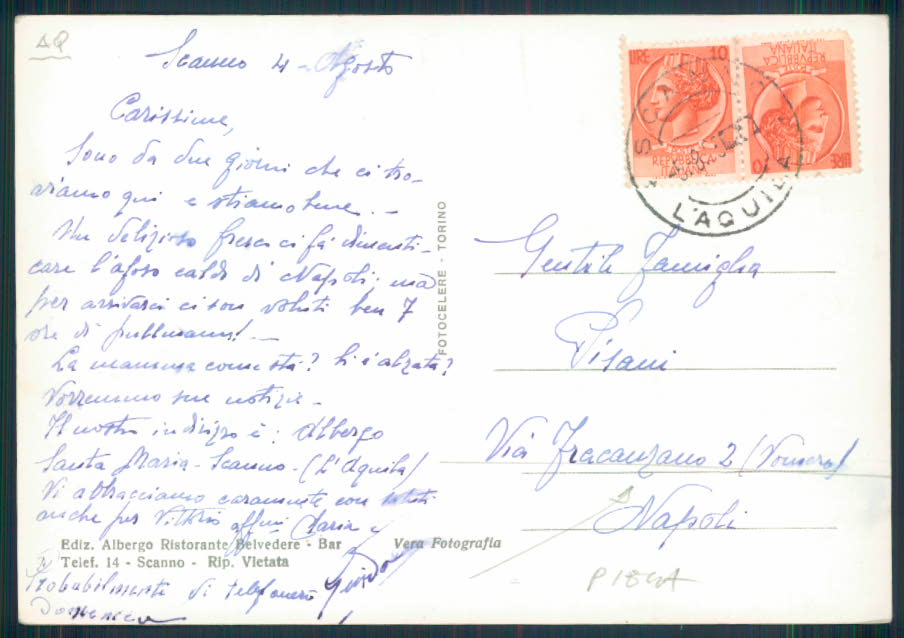 AQ
Scanno 4 - Agosto
Carissime,
Sono da due giorni che ci tro-
viamo qui e stiamo bene. -
Un delizioso fresco ci fà dimenti-
care l'afoso caldo di Napoli; ma
per arrivarci ci son voluti ben 7
ore di pullmann! -
La mamma come stà? Si è alzata?
Vorremmo sue notizie -
Il nostro indirizzo è: Albergo
Santa Maria - Scanno - (L'Aquila)
Vi abbracciamo caramente con saluti
anche per Vittorio affmi Daria e
Guido
Probabilmente vi telefonerò
Domenica
Ediz. Albergo Ristorante Belvedere - Bar
Telef. 14 - Scanno - Rip. Vietata
Vera Fotografia
FOTOCELERE - TORINO
LIRE 10
REPVBBLICA
ITALIANA
POSTE
REPVBBLICA
ITALIANA
LIRE 10
L'AQUILA
Gentile Famiglia
Pisani
Via Fracanzano 2 (Vomero)
Napoli